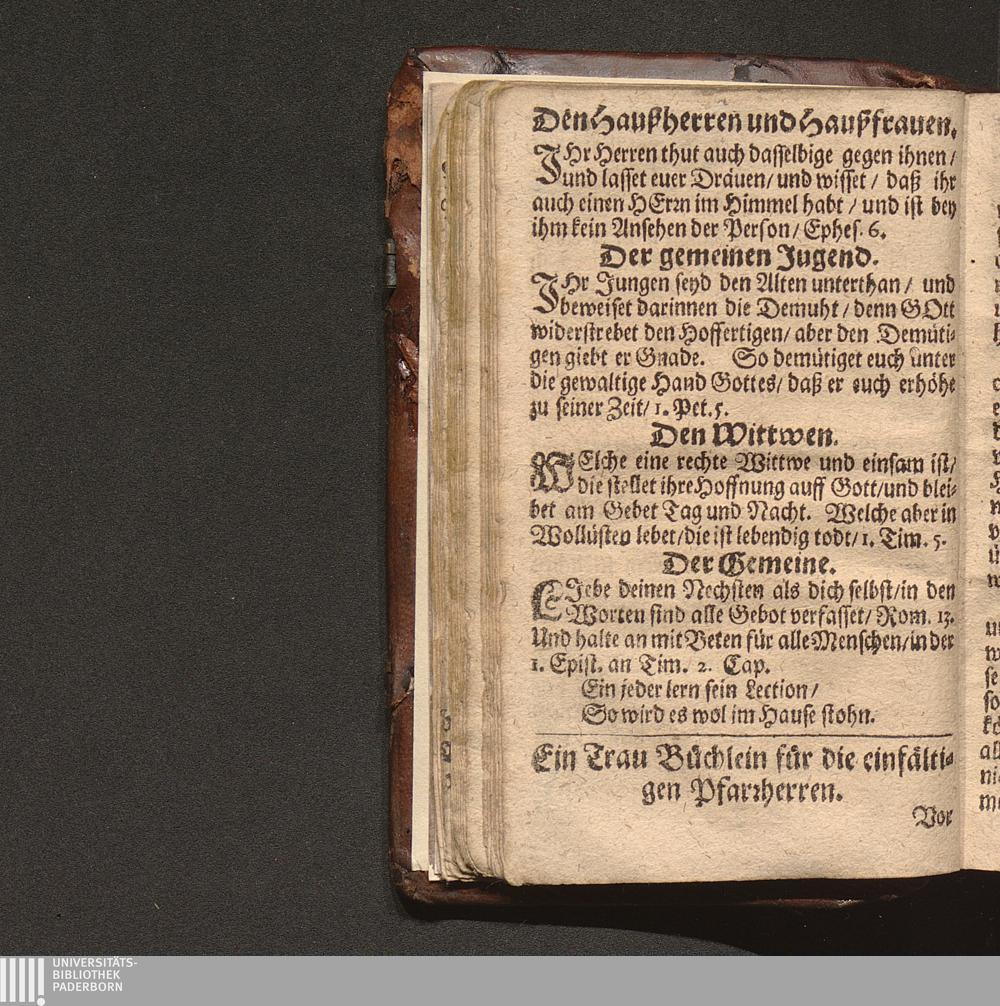 Den Haußherren und Haußfrauen.
IHr Herren thut auch dasselbige gegen ihnen /
und lasset euer Dräuen / und wisset / daß ihr
auch einen HErrn im Himmel habt / und ist bey
ihm kein Ansehen der Person / Ephes. 6.
Der gemeinen Jugend.
IHr Jungen seyd den Alten unterthan / und
beweiset darinnen die Demuht / denn GOtt
widerstrebet den Hoffertigen / aber den Demüti-
gen giebt er Gnade. So demütiget euch unter
die gewaltige Hand Gottes / daß er euch erhöhe
zu seiner Zeit / 1. Pet. 5.
Den Wittwen.
WElche eine rechte Wittwe und einsam ist /
die stellet ihre Hoffnung auff Gott / und blei-
bet am Gebet Tag und Nacht. Welche aber in
Wollüsten lebet / die ist lebendig todt / 1. Tim. 5.
Der Gemeine.
LIebe deinen Nechsten als dich selbst / in den
Worten sind alle Gebot verfasset / Rom. 13.
Und halte an mit Beten für alle Menschen / in der
1. Epist. an Tim. 2. Cap.
Ein jeder lern sein Lection /
So wird es wol im Hause stohn.
Ein Trau Büchlein für die einfälti-
gen Pfarrherren.
Vor
UNIVERSITÄTS-
BIBLIOTHEK
PADERBORN